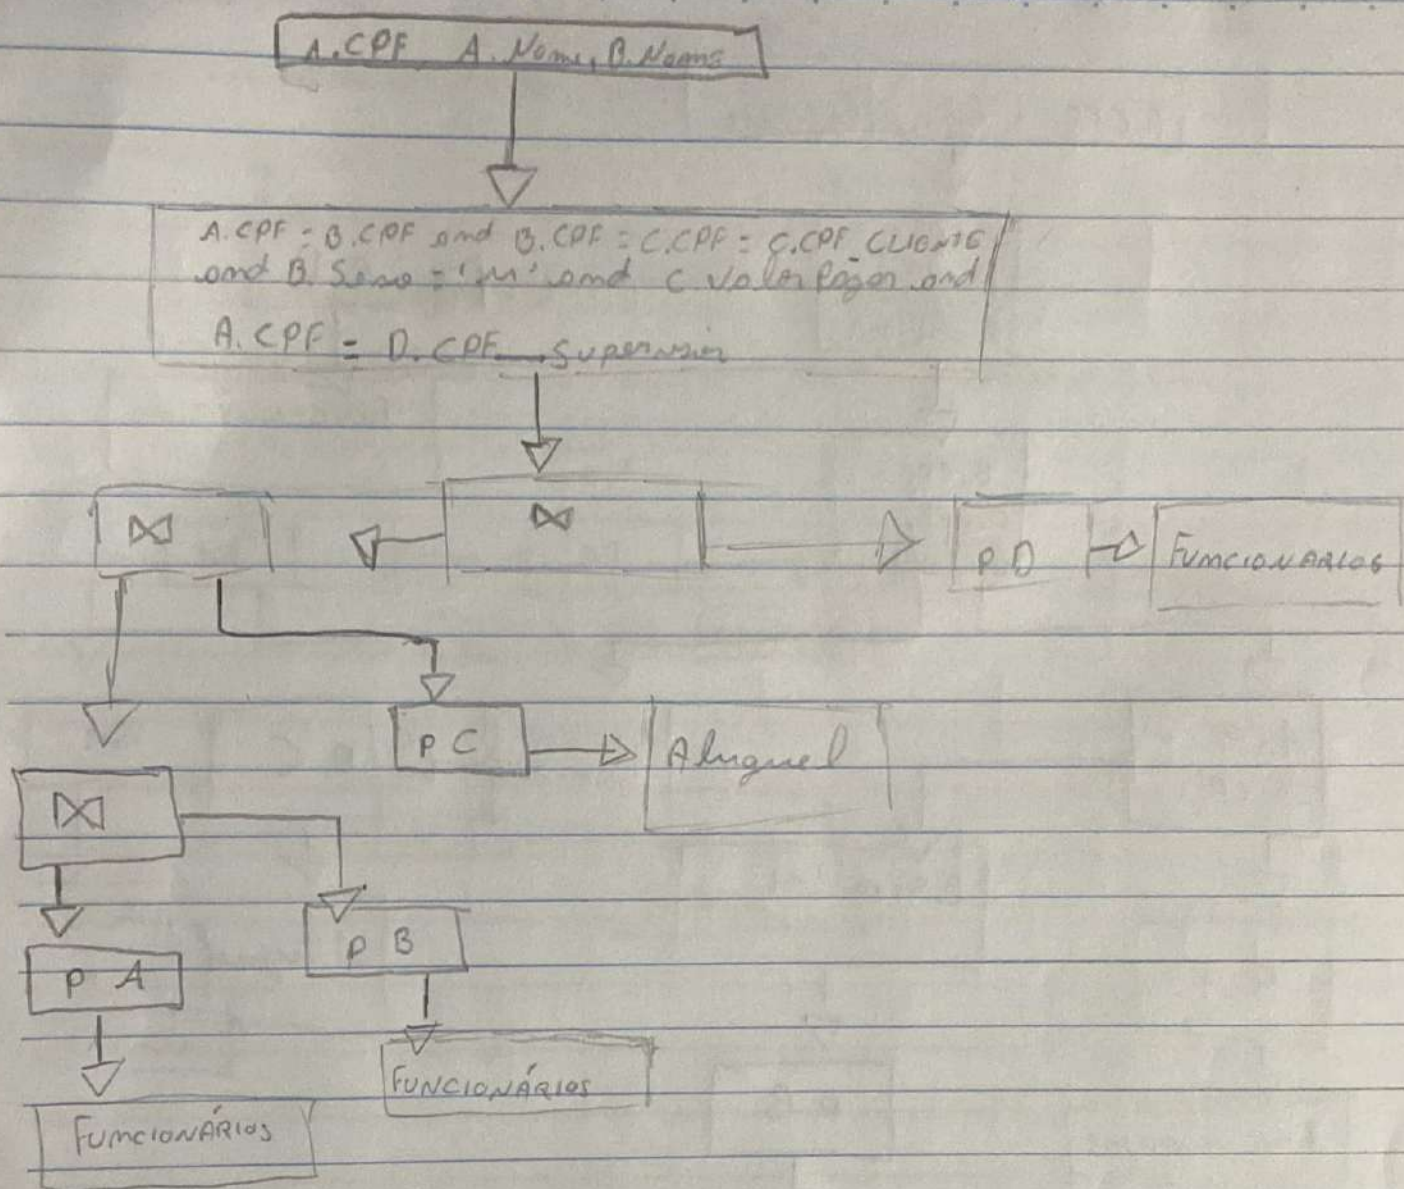 A.CPF A. Nome, B. Nome
A.CPF = B.CPF and B.CPF = C.CPF = C.CPF_CLIENTE
and B. Sexo = 'M' and C Valor Pagar and
A.CPF = D.CPF_Supervisor
⋈ ⋈ ρ D FUMCIONARIOS
ρ C Aluguel
⋈
ρ B
ρ A
FUNCIONÁRIOS
FUMCIONÁRIOS